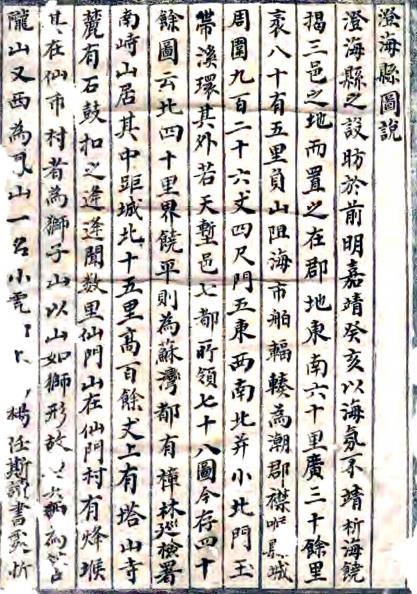 澄海縣圖說
澄海縣之設昉於前明嘉靖癸亥以海氛不靖析海饒
揭三邑之地而置之在郡地東南六十里廣三十餘里
袤八十有五里負山阻海市舶輻輳為潮郡襟喉縣城
周圍九百二十六丈四尺門五東西南北并小北門玉
帶溪環其外若天塹邑七都所領七十八圖今存四十
餘圖云北四十里界饒平則為蘇灣都有樟林巡檢署
南峙山居其中距城北十五里高百餘丈上有塔山寺
麓有石鼓扣之逢逢聞数里仙門山在仙門村有烽堠
其在仙市村者為獅子山以山如獅形故
隴山又西為鳳山一名小 楊任斯讀書